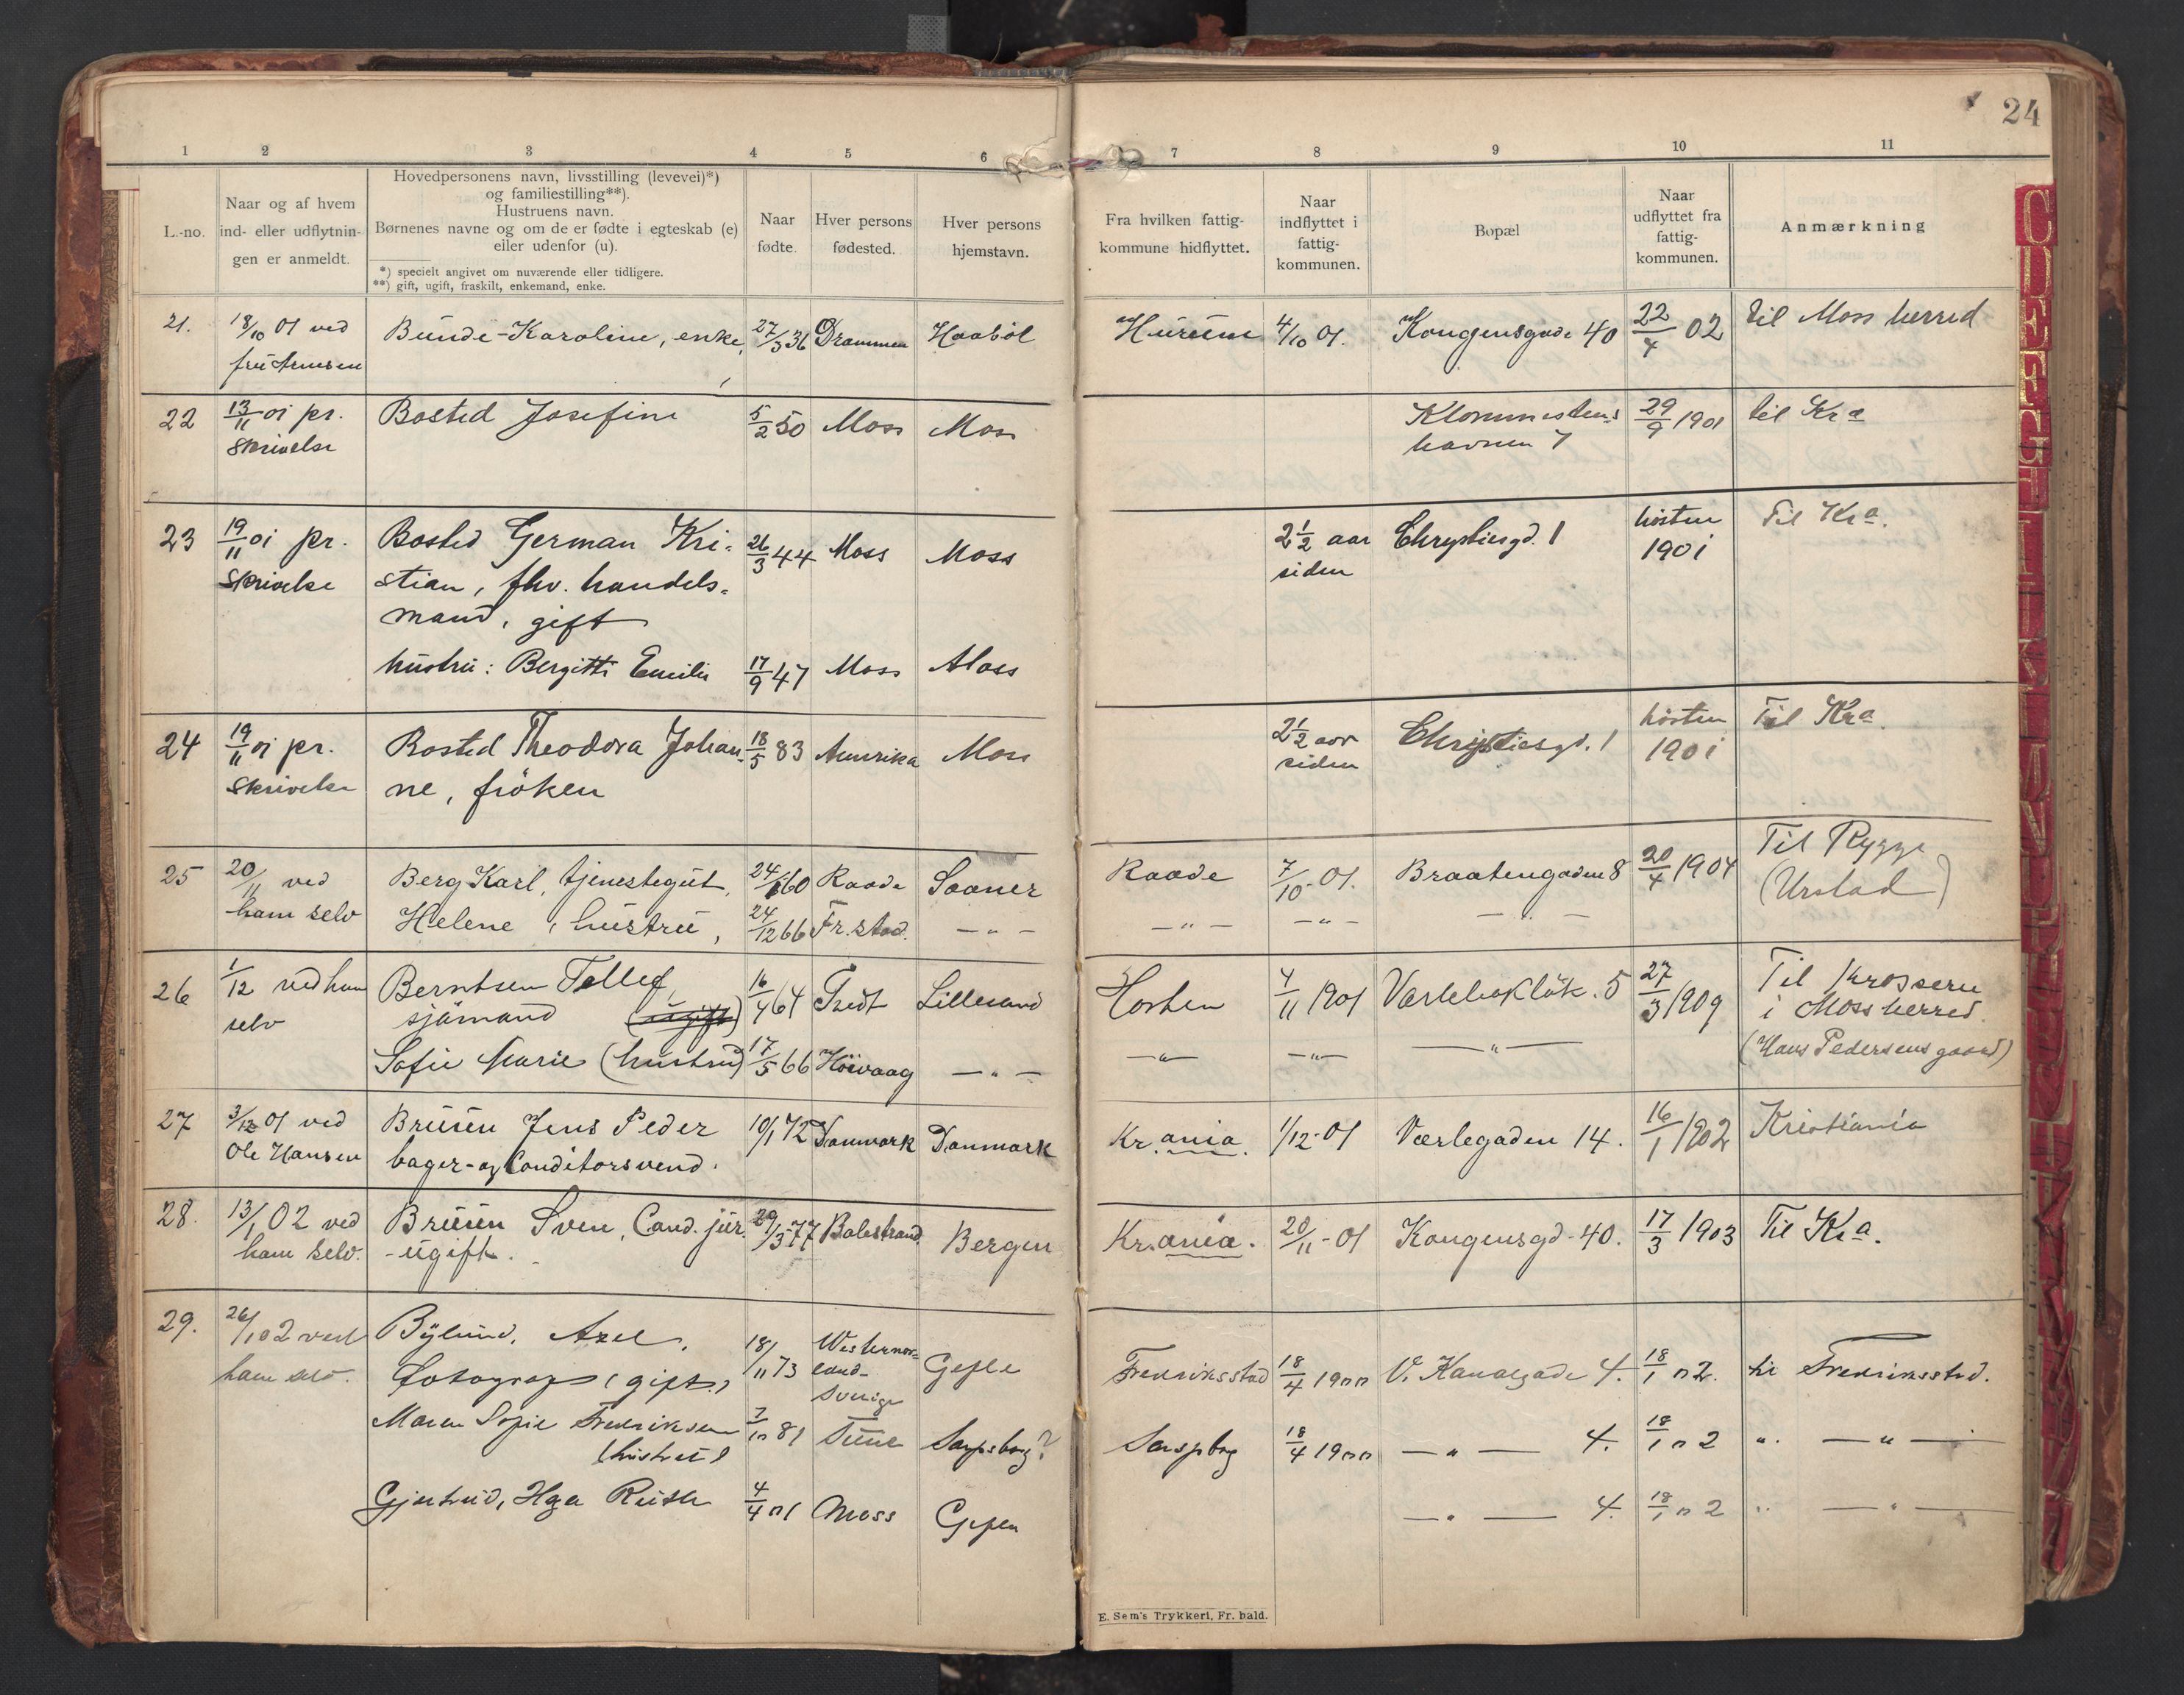 24
1 2 3 4 5 6 7 8 9 10 11
L.-no.
Naar og af hvem
ind- eller udflytnin-
gen er anmeldt.
Hovedpersonens navn, livsstilling (levevei)*)
og familiestilling**).
Hustruens navn.
Børnenes navne og om de er fødte i egteskab (e)
eller udenfor (u).
*) specielt angivet om nuværende eller tidligere.
**) gift, ugift, fraskilt, enkemand, enke.
Naar
fødte.
Hver persons
fødested.
Hver persons
hjemstavn.
Fra hvilken fattig-
kommune hidflyttet.
Naar
indflyttet i
fattig-
kommunen.
Bopæl
Naar
udflyttet fra
fattig-
kommunen.
Anmærkning
21. 18/10 01 ved Bunde-Karoline, enke, 27/3 36 Drammen Haaböl Hurum 4/10 01. Kongensgade 40 22/4 02 til Moss herred
fru Arnesen
22 13/11 01 pr. Bosted Josefine 5/2 50 Moss Moss 29/9 1901 til Kra
skrivelse havnen 7
23 19/11 01 pr. Bosted German Kri- 26/3 44 Moss Moss 2 1/2 aar Chrystiesgd. 1 hösten Til Kra.
skrivelse stian, fhv. handels- siden 1901
mand, gift
hustru: Bergitte Emilie 17/9 47 Moss Moss
24 19/11 01 pr. Bosted Theodora Johan- 18/5 83 Amerika Moss 2 1/2 aar Chrystiesgd. 1 hösten Til Kra.
skrivelse ne, fröken siden 1901
25 20/11 ved Berg Karl, tjenestegut, 24/1 60 Raade Saaner Raade 7/10-01. Braatengaden 8 20/4 1904 Til Rygge
ham selv Helene, hustru, 24/12 66 Fr.stad. — " — — " — — " — — " — (Urstad)
26 1/12 ved ham Berntsen Tellef, 16/4 64 Tvedt Lillesand Horten 4/11 1901 5 27/3 1909 Til Krosseru
selv sjömand (ugift) i Moss herred.
Sofie Marie (hustru) 17/5 66 Höivaag — " — — " — — " — — " — (Hans Pedersens gaard)
27 3/12 01 ved Bruun Jens Peder 10/1 72 Danmark Danmark Kr.ania. 1/12-01 Værlegaden 14. 16/1 1902 Kristiania
Ole Hansen bager- og Conditorsvend.
28. 13/1 02 ved Bruun Sven, Cand. jur. 29/3-77 Balestrand Bergen Kr.ania. 20/11-01 Kongensgd-40. 17/3 1903 Til Kra.
ham selv. -ugift.
29. 26/1 02 ved Bylund, Axel, 18/11 73 Westernor-
land- Gefle Fredriksstad 18/4 1900 V. Kanalgade 4. 18/1 02. til Fredriksstad.
ham selv. fotograf (gift) Sverige
Maren Sofie Fredriksen 7/10 81 Tune Sarpsborg? Sarpsborg 18/4 1900 — " — 4. 18/1 02 " — " —
(hustru)
Gjertrud, Ruth 4/4 01 Moss Geflen — " — 4. 18/1 02 " — " —
E. Sem's Trykkeri, Fr. hald.